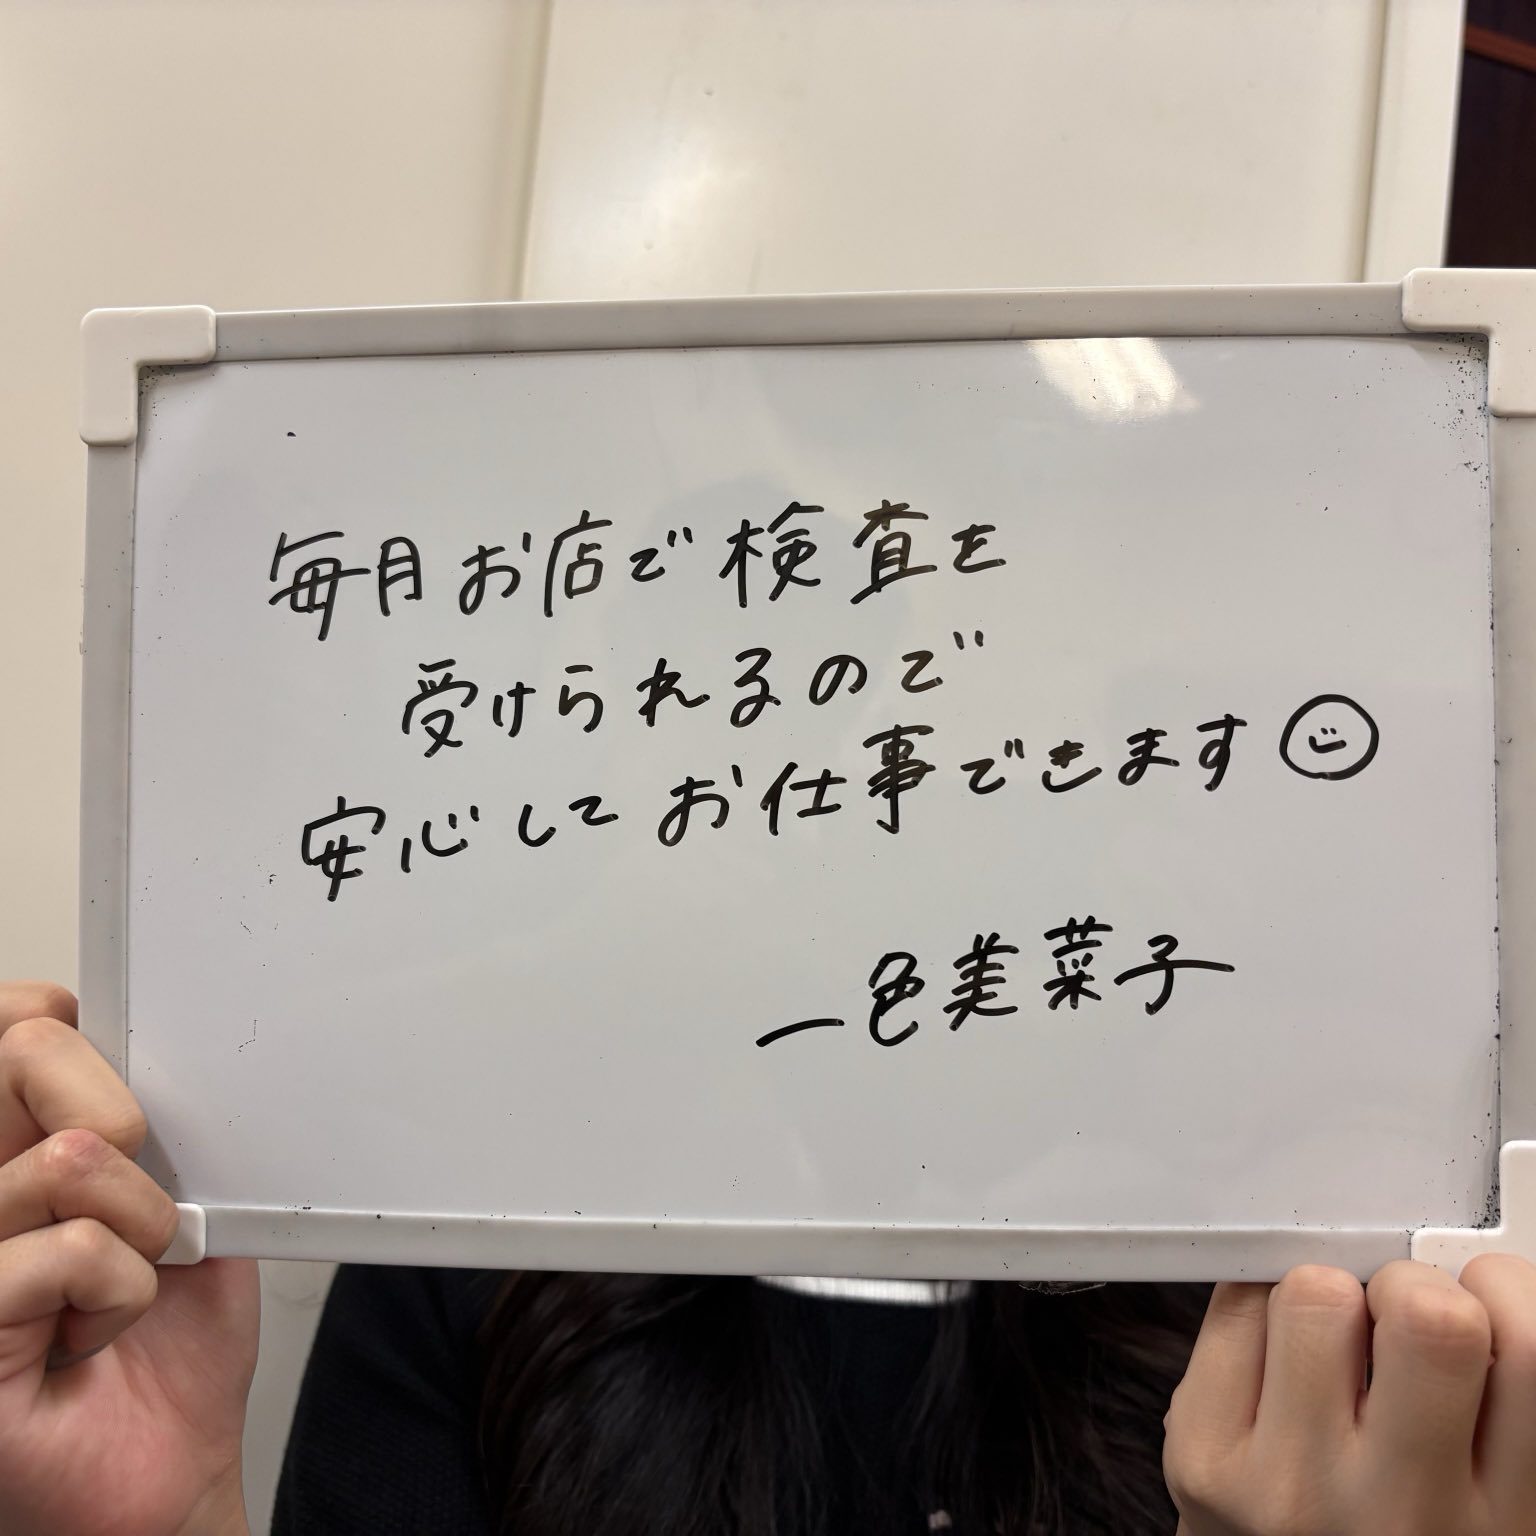 毎月お店で検査を
受けられるので
安心してお仕事できます
一色美菜子